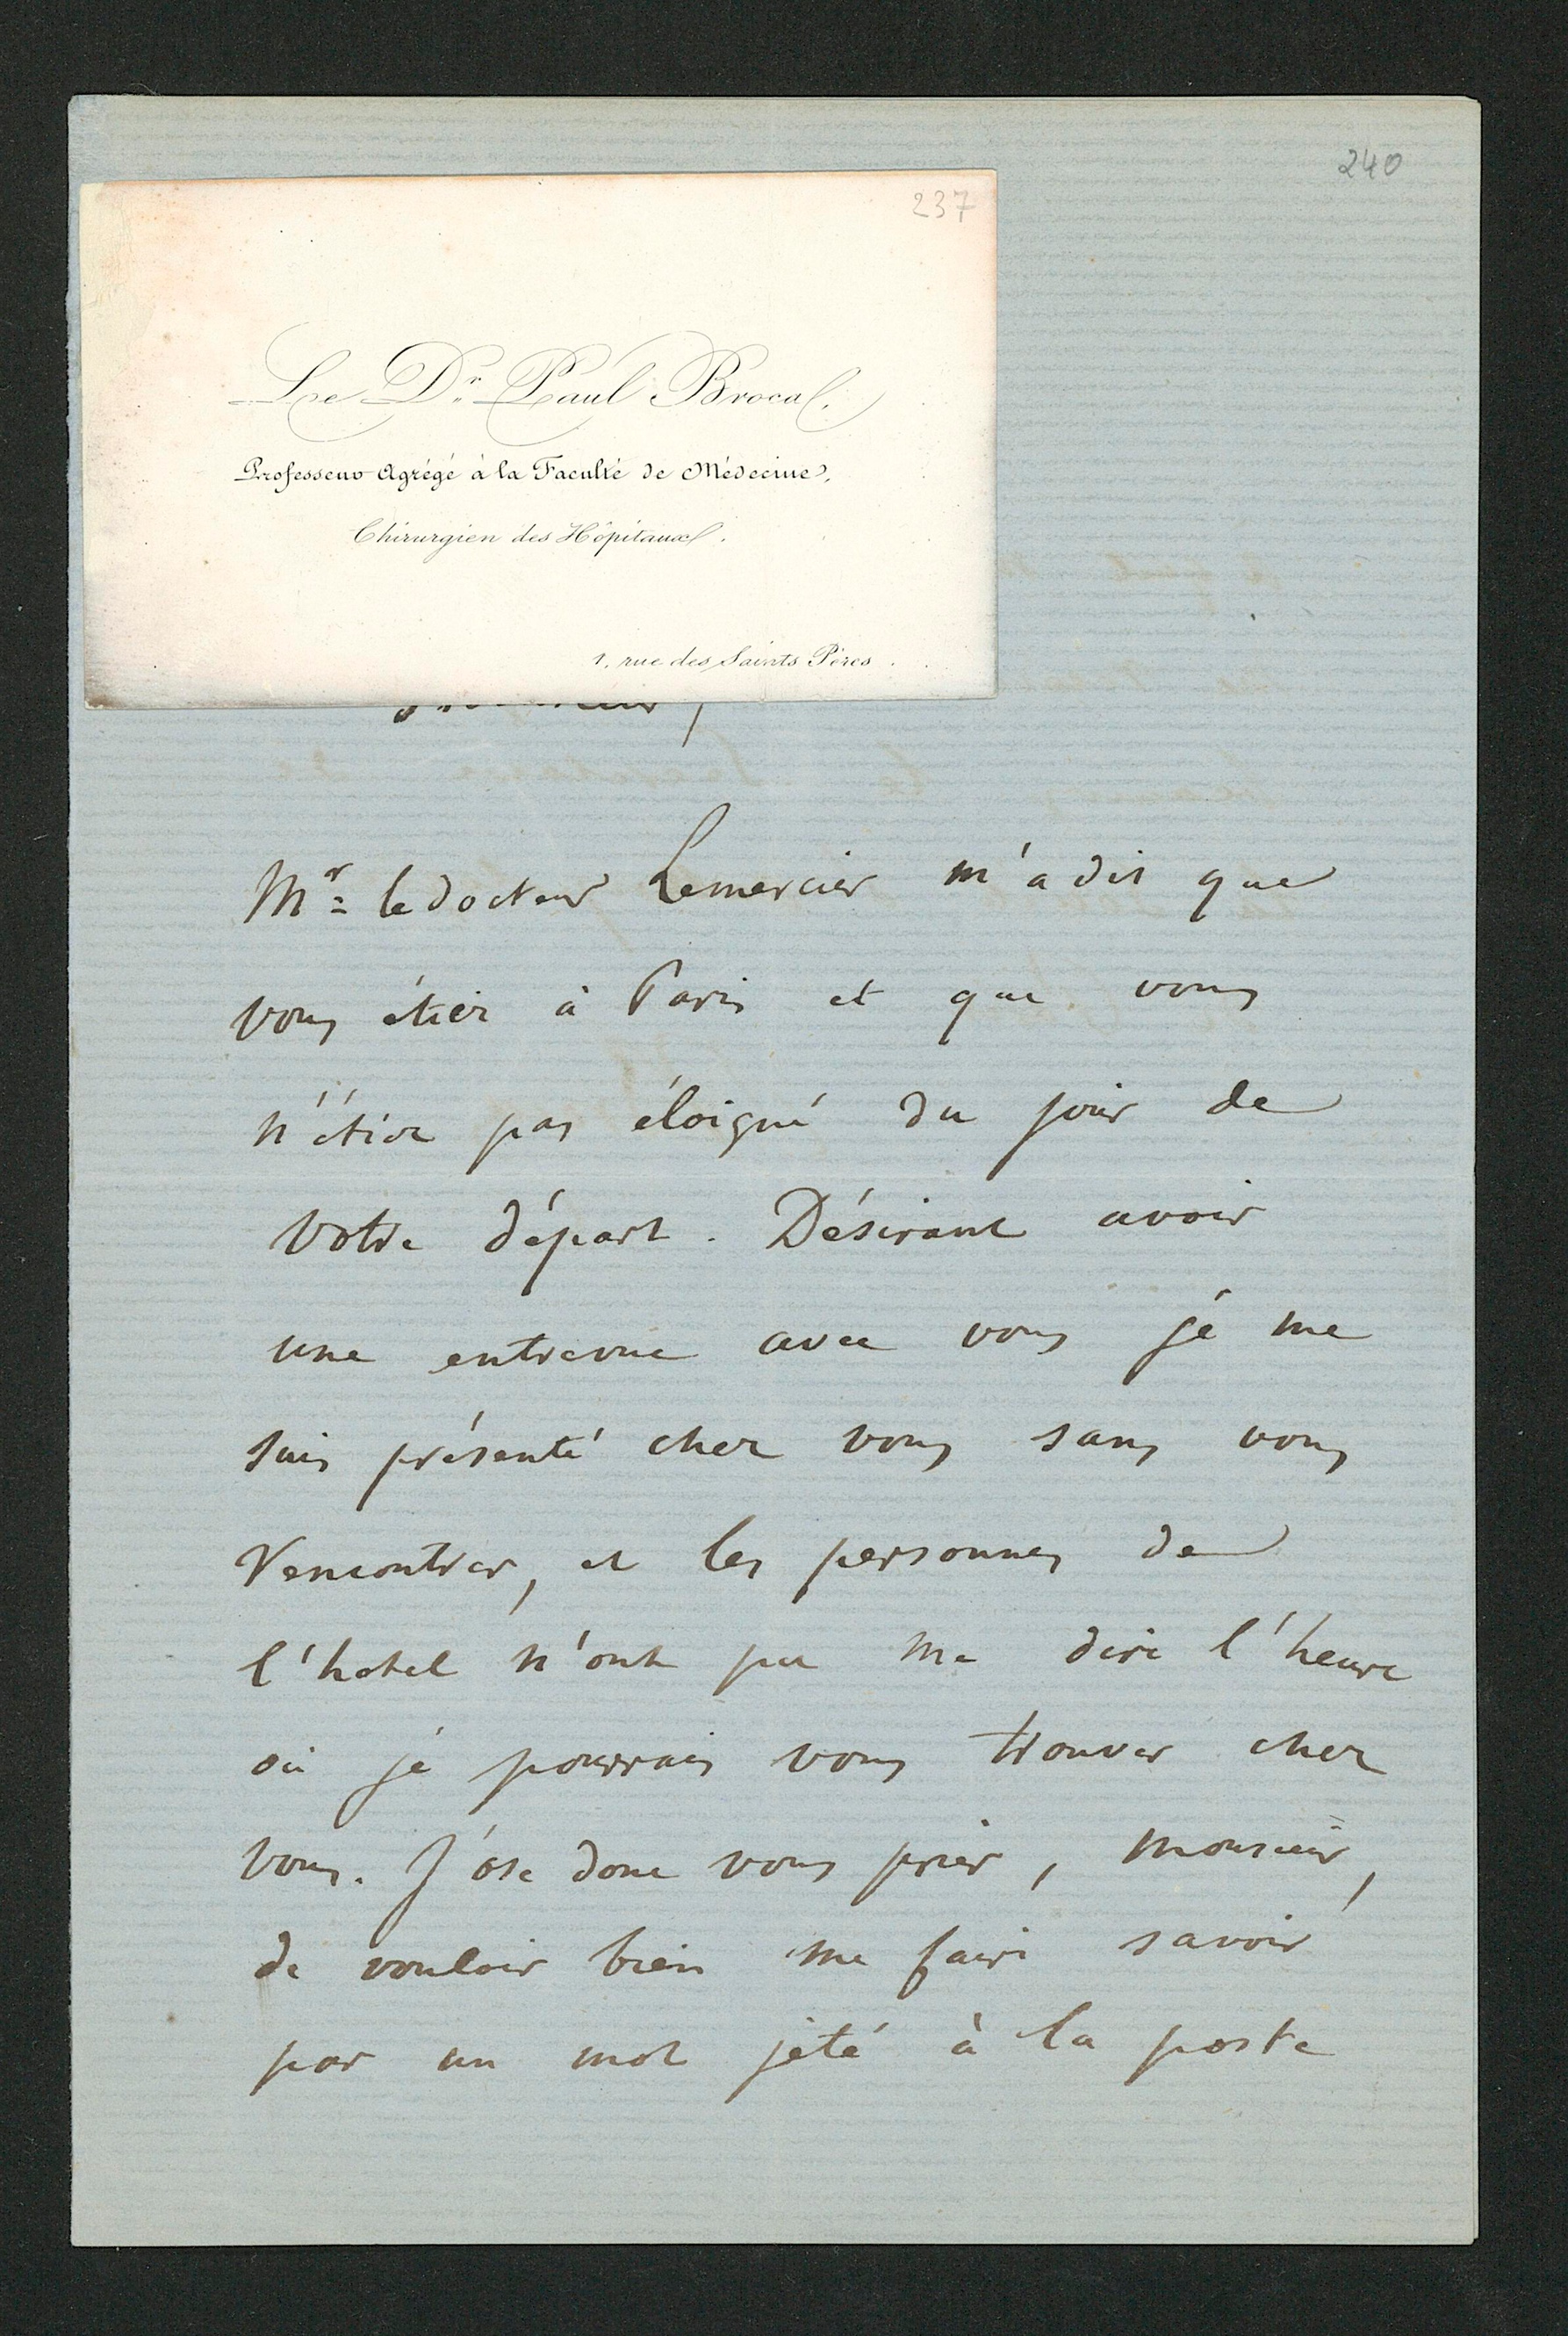 240
237
Le Dr. Paul Broca.
Professeur Agrégé à la Faculté de Médecine.
Chirurgien des Hôpitaux.
1, rue des Saints Pères.
Mr. le docteur Lemercier m'a dit que
vous étiez à Paris et que vous
n'étiez pas éloigné du jour de
votre départ. Désirant avoir
une entrevue avec vous je me
suis présenté chez vous sans vous
rencontrer, et les personnes de
l'hotel n'ont pu me dire l'heure
où je pourrais vous trouver chez
vous. J'ose donc vous prier, monsieur,
de vouloir bien me faire savoir
par un mot jeté à la poste